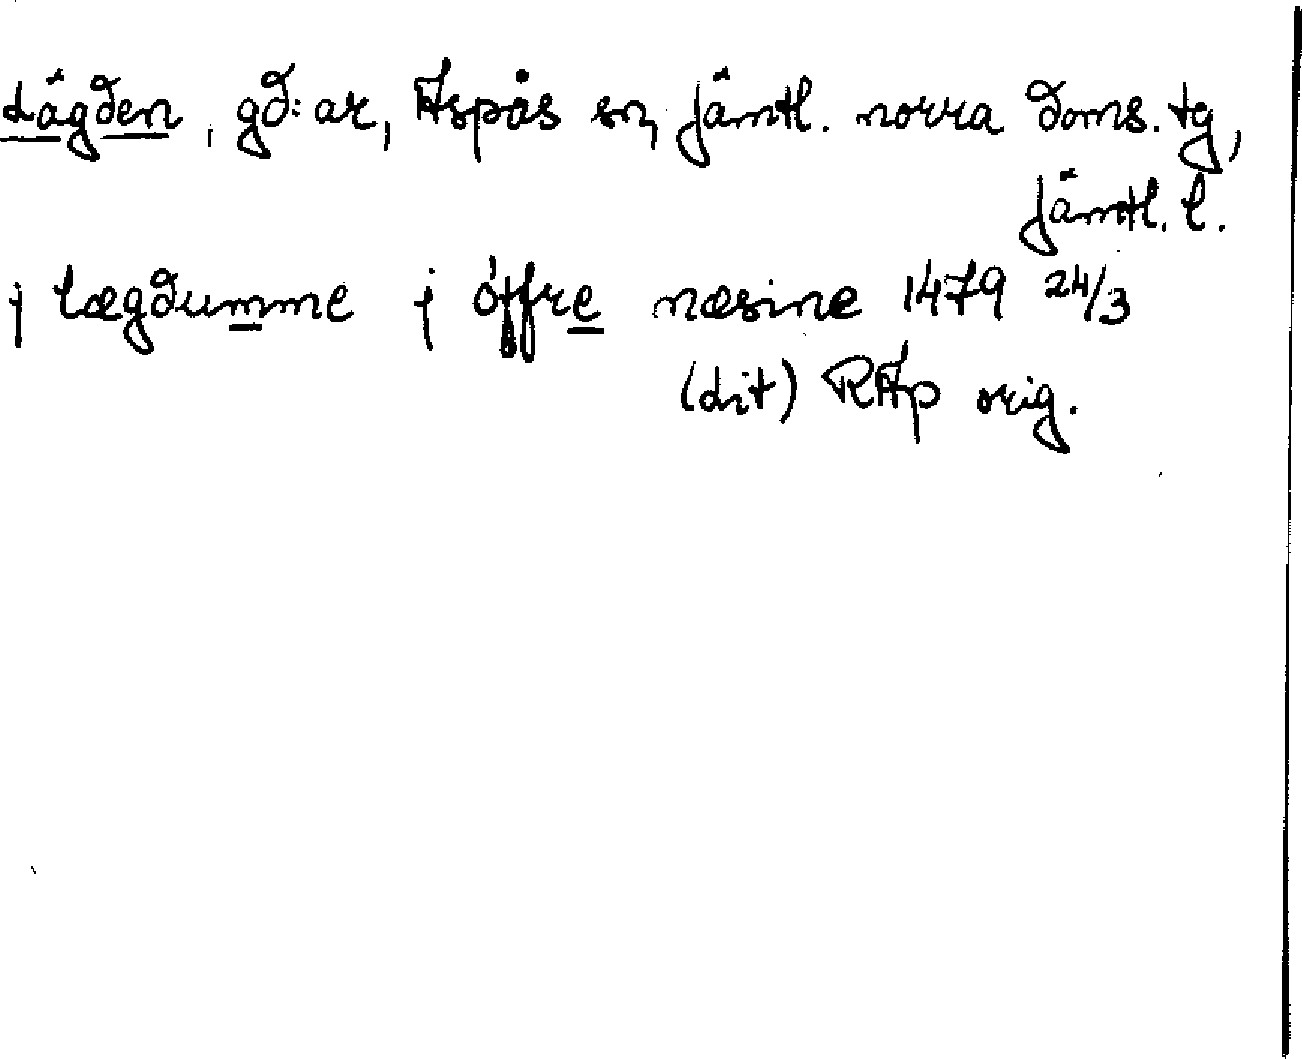 Lägden, gd:ar, Aspås sn, Jämtl. norra doms. tg,
Jämtl. l.
j lægdumme j öffre næsine 1479 24/3
(dit) RAp orig.